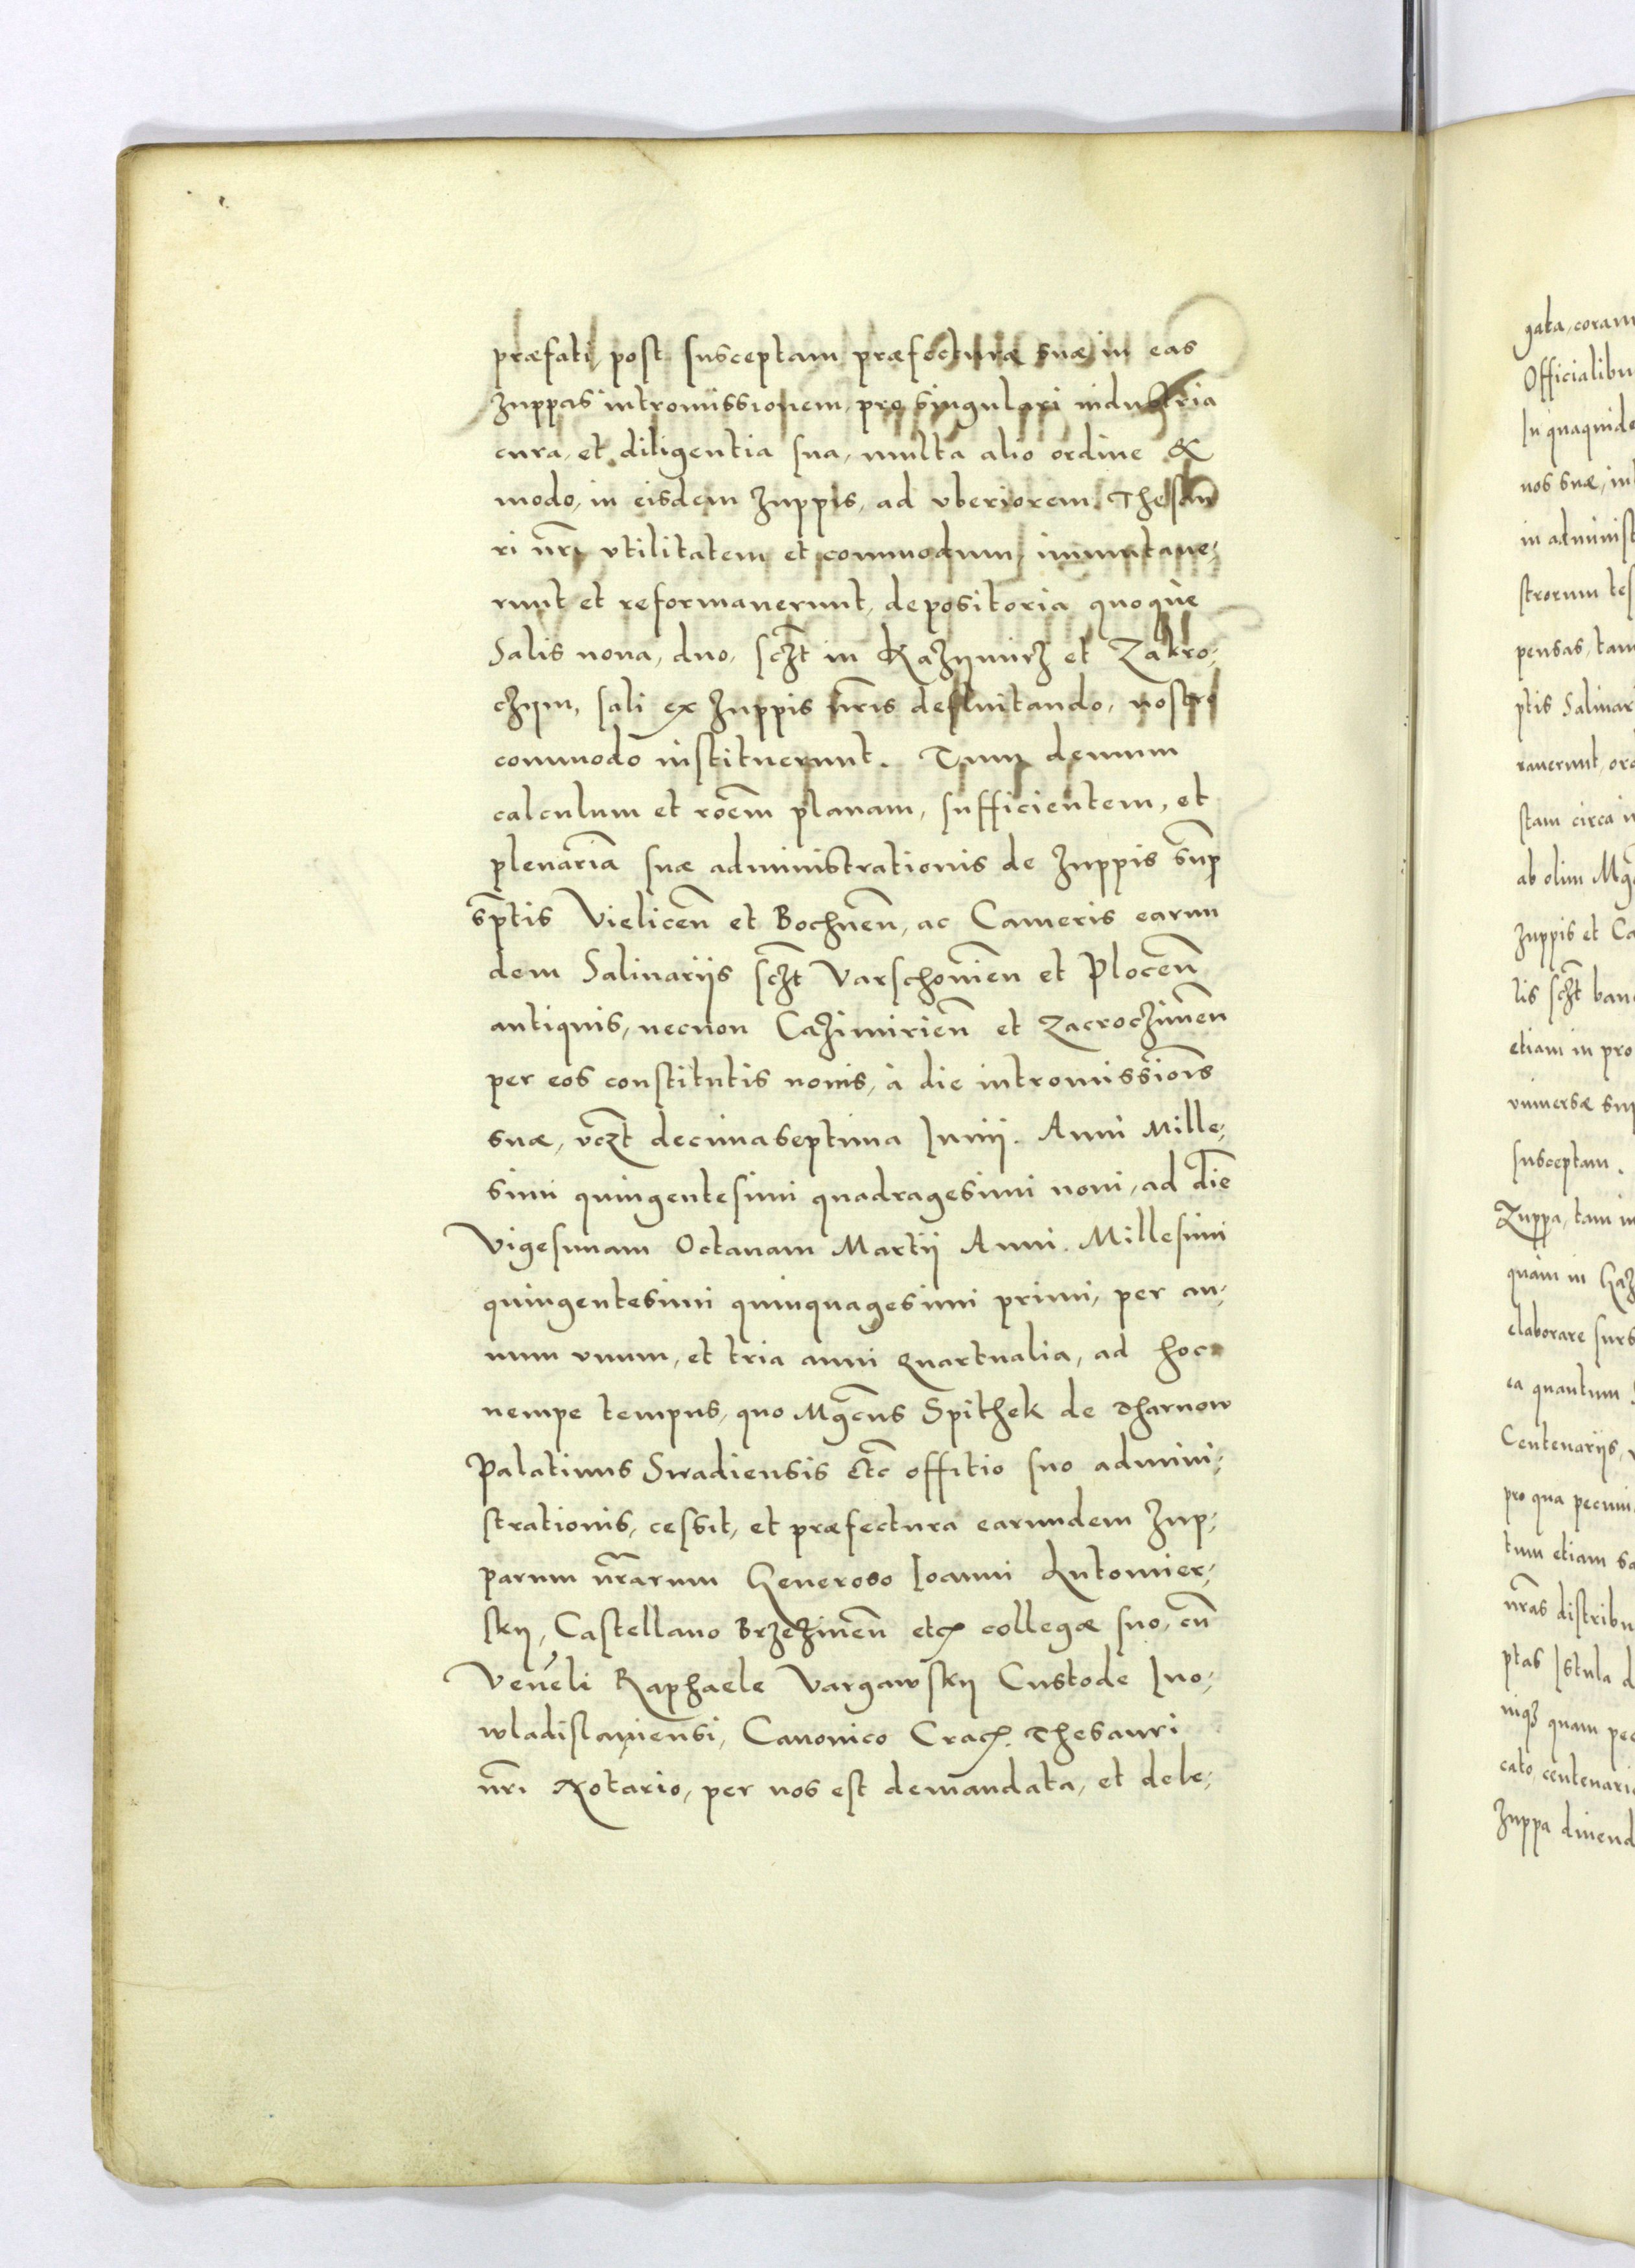 præfati post susceptam præfecturæ suæ in eas
Zuppas intromissionem, pro singulari industria
cura, et diligentia sua, multa alio ordine &
modo, in eisdem Zuppis, ad vberiorem Thesau
ri nr̃i vtilitatem et commodum, immutaue,
runt et reformauerunt, depositoria quoque
Salis noua, duo, sczt̃ in Kazÿmirz et Zakro,
czÿm, sali ex Zuppis nr̃is defluitando, nostro
commodo instituerunt. Tum demum
calculum et rõem planam, sufficientem, et
plenariã suæ administrationis de Zuppis sup̃
sp̃tis Vielicen̄ et Bochnen̄, ac Cameris earun
dem Salinariis sczt̃ Varschouien̄ et Plocen̄
antiquis, necnon Cazimirien̄ et Zacroczimen̄
per eos constitutis nouis, à die intromissiõis
suæ, vczt̃ decimaseptima Iunii. Anni Mille,
simi quingentesimi quadragesimi noni, ad diẽ
Vigesimam Octauam Martii Anni. Millesimi
quingentesimi quinquagesimi primi, per an,
num vnum, et tria anni quartualia, ad hoc
nempe tempus, quo Mgc̃us Spithek de Tharnow
Palatinus Siradiensis etc̃ offitio suo admini,
strationis, cessit, et præfectura earundem Zup,
parum nr̃arum Generoso Ioanni Lutomier,
skÿ, Castellano Brzezinen̄ etc collegæ suo, cũ
Veneli Raphaele Vargawskÿ Custode Ino,
wladislauiensi, Canonico Crac. Thesauri
nr̃i Notario, per nos est demandata, et dele,
gata, coram
Officialibu
In quaquide
nos suæ, in
in administ
strorum tes
pensas, tam
ptis Salinar
rauerunt, or
stam circa i
ab olim Mg
Zuppis et Ca
lis sczt̃ ban
etiam in pro
vniuersæ sup
susceptam.
Zuppa, tam i
quàm in Gaz
elaborare surs
ea quantum
Centenariis,
pro qua pecuni
tum etiam sa
nr̃as distribu
ptas Istula d
niqz quam pec
cato, centenari
Zuppa diuend